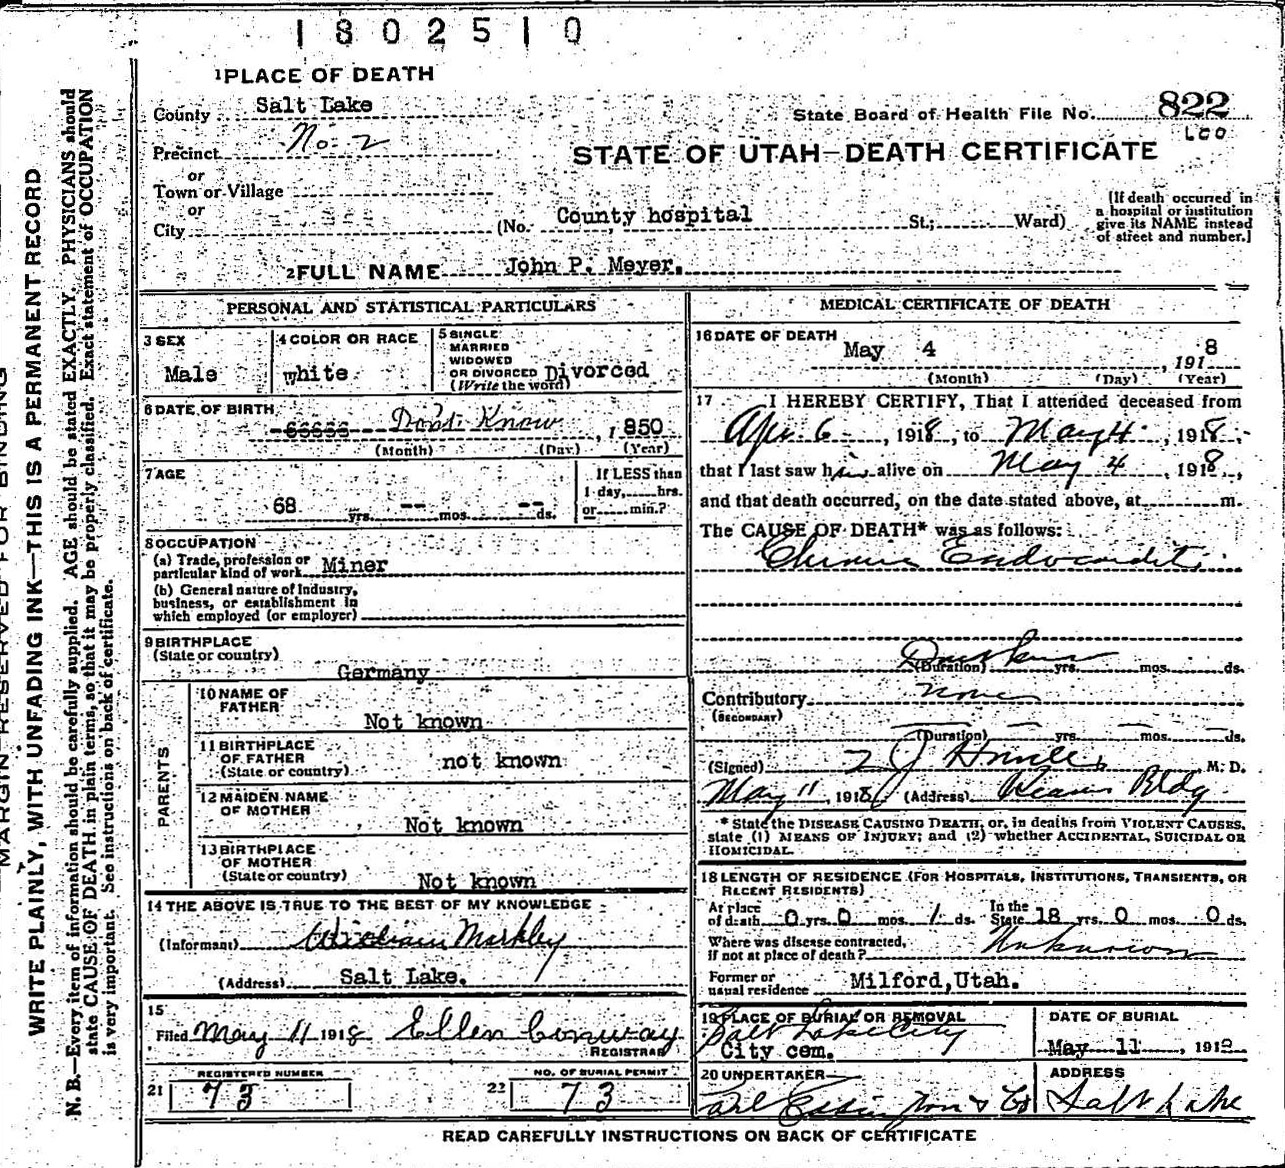 1802510
1 PLACE OF DEATH
County Salt Lake
State Board of Health File No. 822
Precinct No. 2
STATE OF UTAH—DEATH CERTIFICATE
or
Town or Village
or
City
(No. County hospital St.; Ward)
[If death occurred in a hospital or institution give its NAME instead of street and number.]
2 FULL NAME John P. Meyer.
PERSONAL AND STATISTICAL PARTICULARS
3 SEX
Male
4 COLOR OR RACE
white
5 SINGLE
MARRIED
WIDOWED
OR DIVORCED Divorced
(Write the word)
6 DATE OF BIRTH
Dont Know, 1850
(Month) (Day) (Year)
7 AGE
68 yrs. -- mos. -- ds.
If LESS than
1 day, hrs.
or min.?
8 OCCUPATION
(a) Trade, profession or
particular kind of work Miner
(b) General nature of Industry,
business, or establishment in
which employed (or employer)
9 BIRTHPLACE
(State or country)
Germany
PARENTS
10 NAME OF
FATHER
Not known
11 BIRTHPLACE
OF FATHER
(State or country)
not known
12 MAIDEN NAME
OF MOTHER
Not known
13 BIRTHPLACE
OF MOTHER
(State or country)
Not known
14 THE ABOVE IS TRUE TO THE BEST OF MY KNOWLEDGE
(Informant) William Markley
(Address) Salt Lake.
15
Filed May 11 1918 Ellen Conway
REGISTRAR
REGISTERED NUMBER
21 73
NO. OF BURIAL PERMIT
22 73
MEDICAL CERTIFICATE OF DEATH
16 DATE OF DEATH
May 4, 1918
(Month) (Day) (Year)
17 I HEREBY CERTIFY, That I attended deceased from
Apr. 6, 1918, to May 4, 1918,
that I last saw him alive on May 4, 1918,
and that death occurred, on the date stated above, at m.
The CAUSE OF DEATH* was as follows:
Chronic Endocarditis
(Duration) yrs. mos. ds.
Contributory none
(SECONDARY)
(Duration) yrs. mos. ds.
(Signed) M. D.
May 11, 1918 (Address) Bldg
* State the DISEASE CAUSING DEATH, or, in deaths from VIOLENT CAUSES,
state (1) MEANS OF INJURY; and (2) whether ACCIDENTAL, SUICIDAL OR
HOMICIDAL.
18 LENGTH OF RESIDENCE (FOR HOSPITALS, INSTITUTIONS, TRANSIENTS, OR
RECENT RESIDENTS)
At place
of death 0 yrs. 0 mos. 1 ds. In the State 18 yrs. 0 mos. 0 ds.
Where was disease contracted,
if not at place of death? Unknown
Former or
usual residence Milford, Utah.
19 PLACE OF BURIAL OR REMOVAL
Salt Lake City
City cem.
DATE OF BURIAL
May 11, 191
20 UNDERTAKER
ADDRESS
Salt Lake
READ CAREFULLY INSTRUCTIONS ON BACK OF CERTIFICATE
MARGIN RESERVED FOR BINDING
WRITE PLAINLY, WITH UNFADING INK—THIS IS A PERMANENT RECORD
N. B.—Every item of information should be carefully supplied. AGE should be stated EXACTLY. PHYSICIANS should
state CAUSE OF DEATH in plain terms, so that it may be properly classified. Exact statement of OCCUPATION
is very important. See instructions on back of certificate.